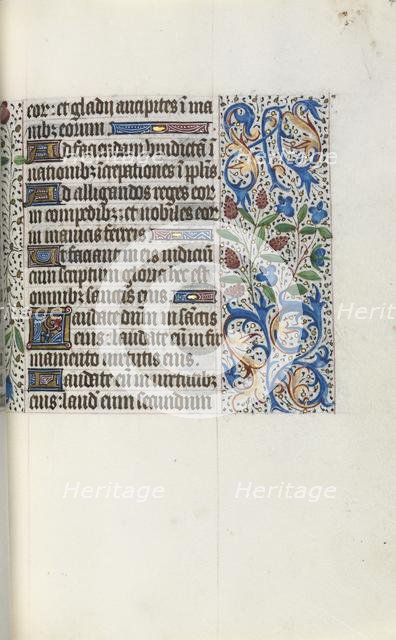 eor: et gladij ancipites i ma
nibz eorum
Ad faciendam vindictā i
nationibz: increpationes i pplis
Ad alligandos reges eor
in compedibz: et nobiles eor
in manicis ferreis
Ut faciant in eis iudiciū
conscriptum: gloria hec est
omnibz sanctis eius
Laudate dnm in sāctis
eius: laudate eū in fir
mamento virtutis eius.
Laudate eū in virtutibz
eius: laud eum secundum
Heritage
Heritage
Heritage
Heritage
Heritage
Heritage